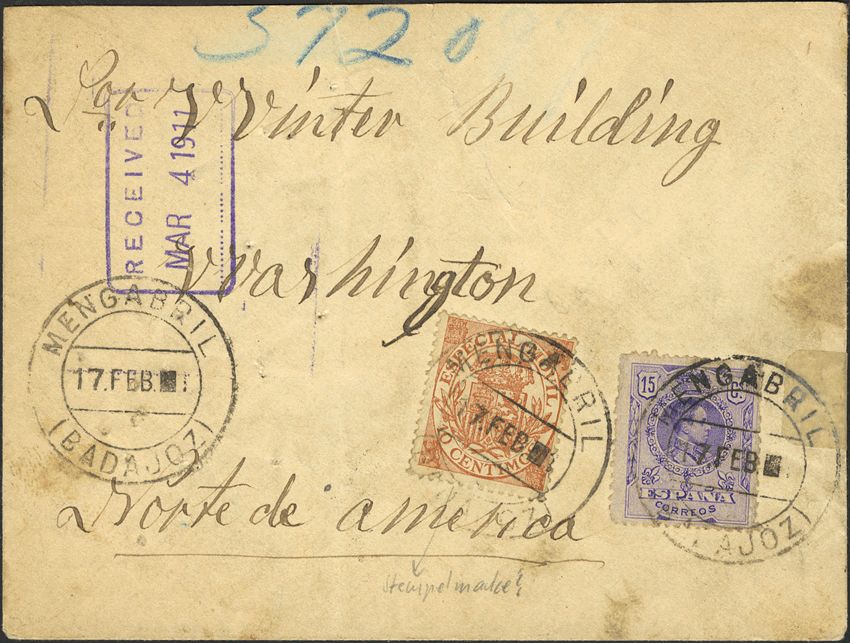 572
Por Winter Building
RECEIVED
MAR 4 1911
Washington
MENGABRIL
17.FEB.
(BADAJOZ)
ESPECIAL MOVIL
10 CENTIMOS
MENGABRIL
17.FEB
15 C.
MENGABRIL
17.FEB
ESPAÑA
CORREOS
(BADAJOZ)
Norte de america
Stempelmarke?